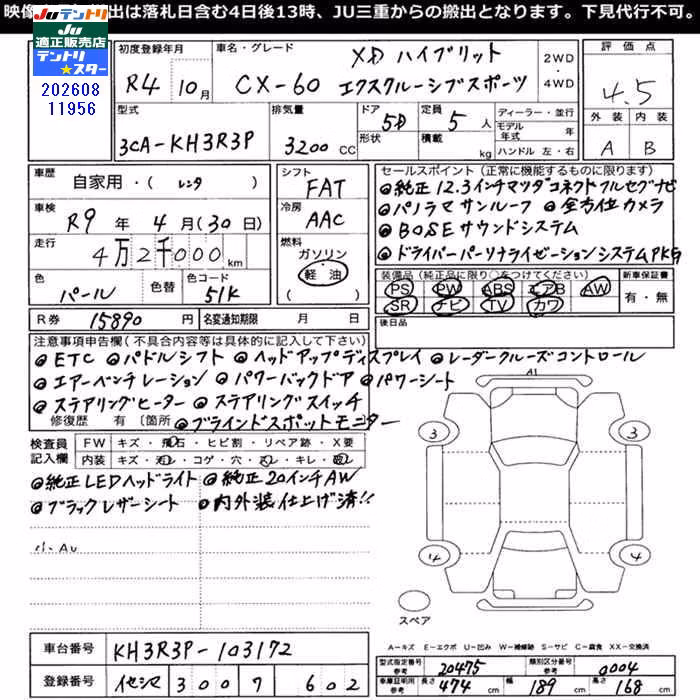 映像 出は落札日含む4日後13時、JU三重からの搬出となります。下見代行不可。
JUテントリ
JU適正販売店
テントリ★スター
202608
11956
初度登録年月
R4 10月
車名・グレード
XD ハイブリット
CX-60 エクスクルーシブスポーツ
2WD
・
4WD
評価点
4.5
外装 内装
A B
型式
3CA-KH3R3P
排気量
3200 CC
ドア 5D
形状
定員 5 人
積載 kg
ディーラー・並行
モデル年式 年
ハンドル 左・右
車歴 自家用・(レンタ)
車検 R9 年 4 月(30日)
走行 4万2千000 km
色 パール 色替
色コード 51K
シフト
FAT
冷房
AAC
燃料
ガソリン
軽・油
( )
セールスポイント(正常に機能するものに限ります)
◎純正12.3インチマツダコネクトフルセグナビ
◎パノラマサンルーフ ◎全方位カメラ
◎BOSEサウンドシステム
◎ドライバーパーソナライゼーションシステムPKG
装備品(純正品に限り○をつけてください)
PS PW ABS エアB AW
SR ナビ TV カワ
新車保証書
有・無
後日品
R券 15890 円
名変通知期限 月 日
注意事項申告欄(不具合内容等は具体的に記入して下さい)
◎ETC ◎パドルシフト ◎ヘッドアップディスプレイ ◎レーダークルーズコントロール
◎エアーベンチレーション ◎パワーバックドア ◎パワーシート
◎ステアリングヒーター ◎ステアリングスイッチ
修復歴 有〔箇所 ◎ブラインドスポットモニター
検査員記入欄
FW キズ・飛石・ヒビ割・リペア跡・X要
内装 キズ・汚レ・コゲ・穴・スレ・キレ・破レ
◎純正LEDヘッドライト ◎純正20インチAW
◎ブラックレザーシート ◎内外装仕上げ済!!
小・AU
A1
3 3
4 4
スペア
A=キズ E=エクボ U=凹み W=補修跡 S=サビ C=腐食 XX=交換済
車台番号 KH3R3P-103172
登録番号 イセシマ 300 ワ 602
型式指定番号 参考 20475
類別区分番号 参考 0004
車庫証明用 参考 長さ 474 cm 幅 189 cm 高さ 168 cm